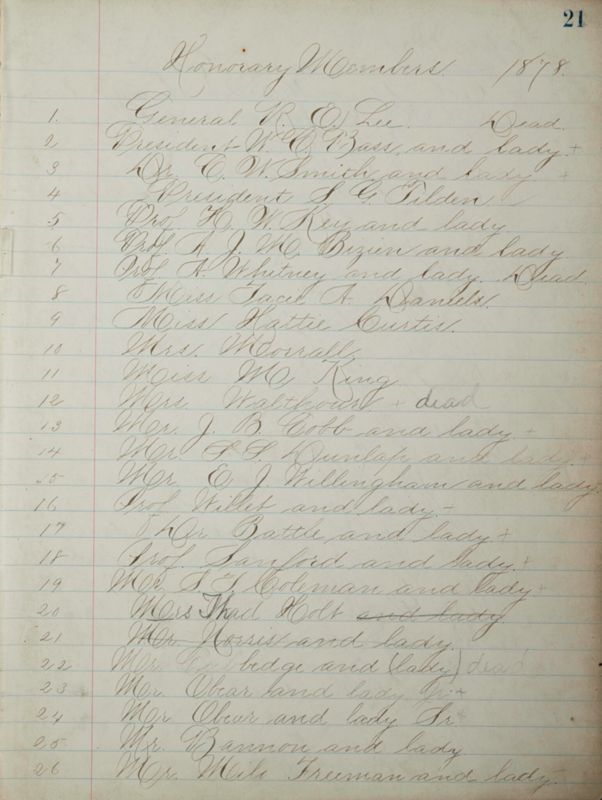 21
Honorary Members. 1878.
1. General R. E. Lee. Dead.
2 President W. C. Bass and lady. +
3 Dr. C. W. Smith and lady +
4 President S. G. Tilden
5 Prof. H. W. Key and lady
6 Prof. A. J. M. Bizien and lady
7 Prof. A. Whitney and lady. Dead.
8 Miss A. Daniels.
9 Miss Hattie Curtis.
10 Mrs. Morrall,
11 Miss M. King
12 Mrs. Walthour + dead
13 Mr. J. B. Cobb and lady. +
14 Mr. S. S. Dunlap and lady. +
15 Mr. E. J. Willingham and lady
16 Prof. Willet and lady. +
17 Dr. Battle and lady +
18 Prof. Sanford and lady. +
19 Mr. S. T. Coleman and lady +
20 Mrs Thad Holt and lady
21 Mr. Norris and lady.
22 Mr. and (lady) dead
23 Mr. Obear and lady Jr. +
24 Mr. Obear and lady Sr. +
25 Mr. Bannon and lady
26 Mr. Milo Freeman and lady.